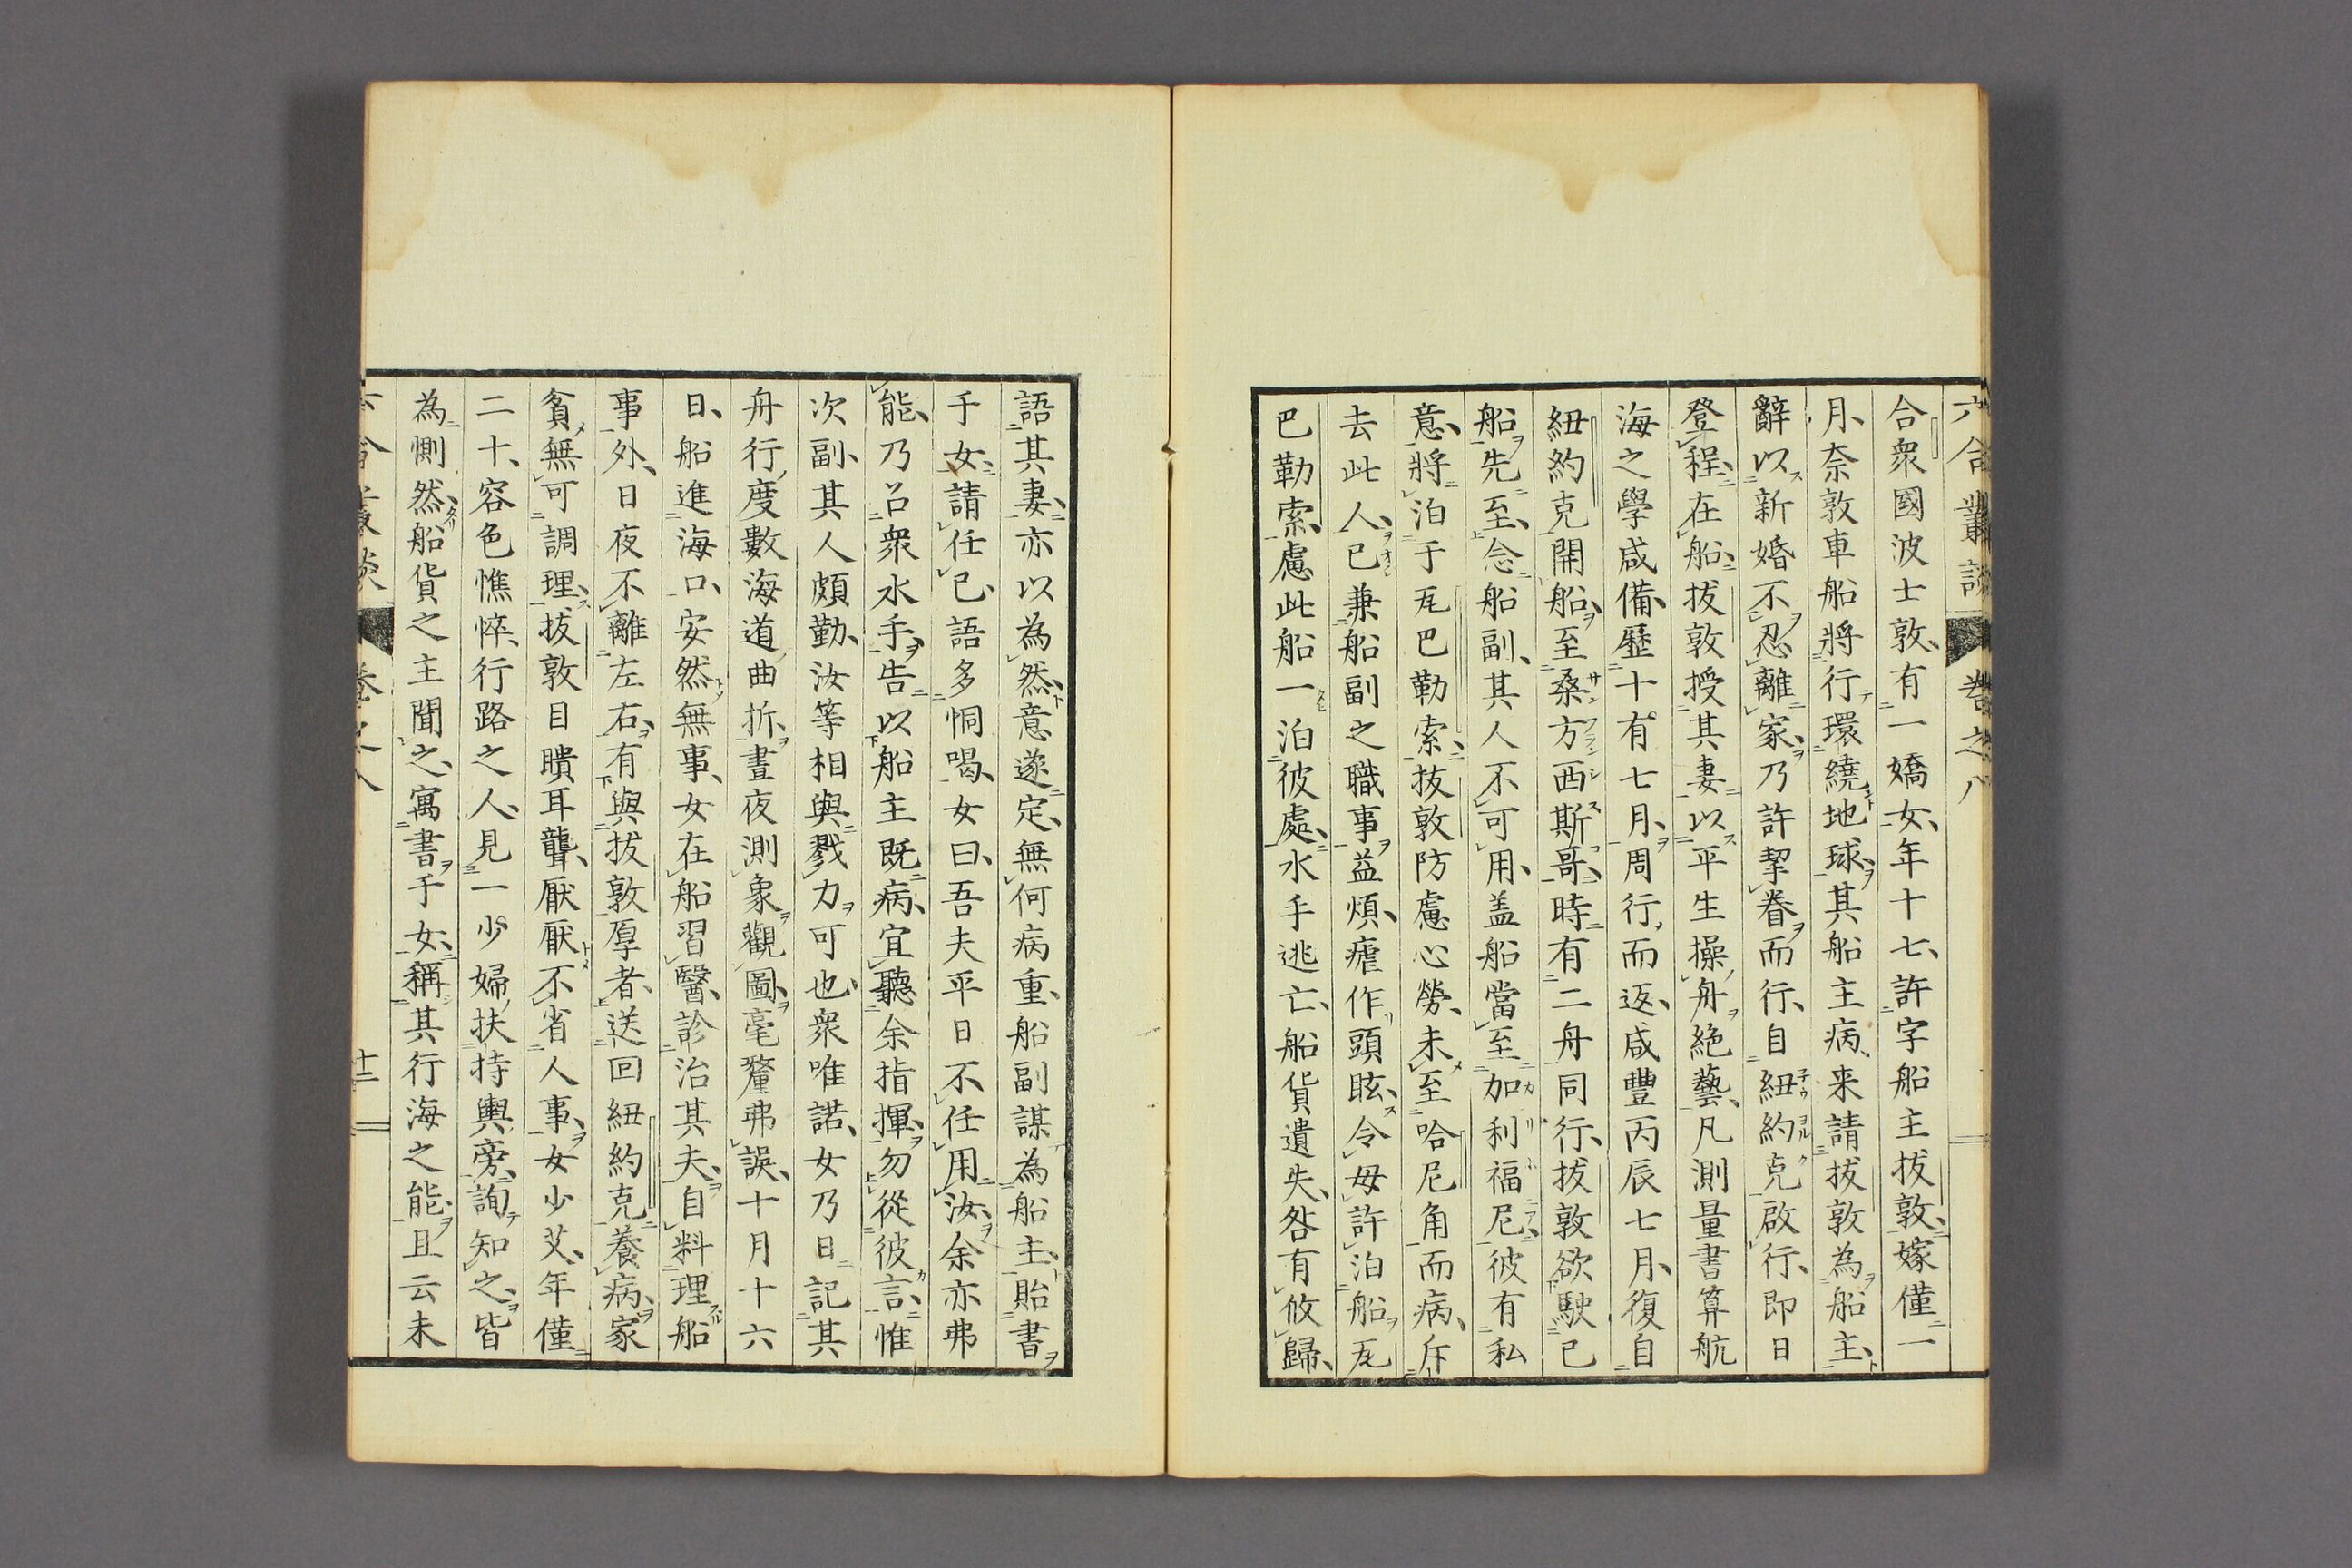 六合叢談 卷之八
合衆國波士敦、有一嬌女、年十七、許字船主拔敦、嫁僅一
月、奈敦車船將行環繞地球、其船主病、来請拔敦為船主、
辭以新婚不忍離家、乃許挈眷而行、自紐約克啟行、即日
登程、在船、拔敦授其妻以平生操舟絶藝、凡測量書算航
海之學咸備、歷十有七月、周行而返、咸豐丙辰七月、復自
紐約克開船、至桑方西斯哥、時有二舟同行、拔敦欲駛己
船先至、念船副、其人不可用、盖船當至加利福尼、彼有私
意、將泊于瓦巴勒索、拔敦防慮心勞、未至哈尼角而病、斥
去此人、已兼船副之職事益煩、瘧作頭眩、令毋許泊船瓦
巴勒索、慮此船一泊彼處、水手逃亡、船貨遺失、咎有攸歸、
語其妻、亦以為然、意遂定、無何病重、船副謀為船主、貽書
于女、請任已、語多恫喝、女曰、吾夫平日不任用汝、余亦弗
能、乃召衆水手、告以船主既病、宜聽余指揮、勿從彼言、惟
次副、其人頗勤、汝等相與戮力可也、衆唯諾、女乃日記其
舟行、度數海道、曲折、晝夜測象觀圖、毫釐弗誤、十月十六
日、船進海口、安然無事、女在船習醫、診治其夫、自料理船
事外、日夜不離左右、有與拔敦厚者、送回紐約克養病、家
貧無可調理、拔敦目瞶耳聾、厭厭不省人事、女少艾、年僅
二十、容色憔悴、行路之人、見一少婦、扶持輿旁、詢知之、皆
為惻然、船貨之主聞之、寓書于女、稱其行海之能、且云未
六合叢談 卷之八 十二